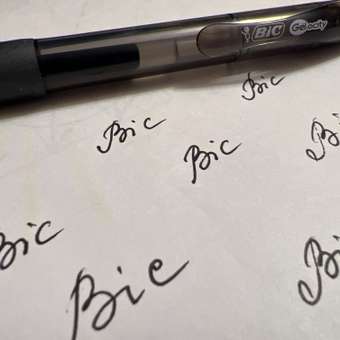 BIC Gelocity
Bic
Bic
Bic
Bi
Bic
Bic
Bi